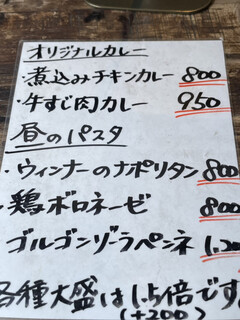 オリジナルカレー
・煮込みチキンカレー 800
・牛すじ肉カレー 950
昼のパスタ
・ウィンナーのナポリタン 800
・鶏ボロネーゼ 800
ゴルゴンゾーラペンネ 1.20
各種大盛は1.5倍です
(+200)